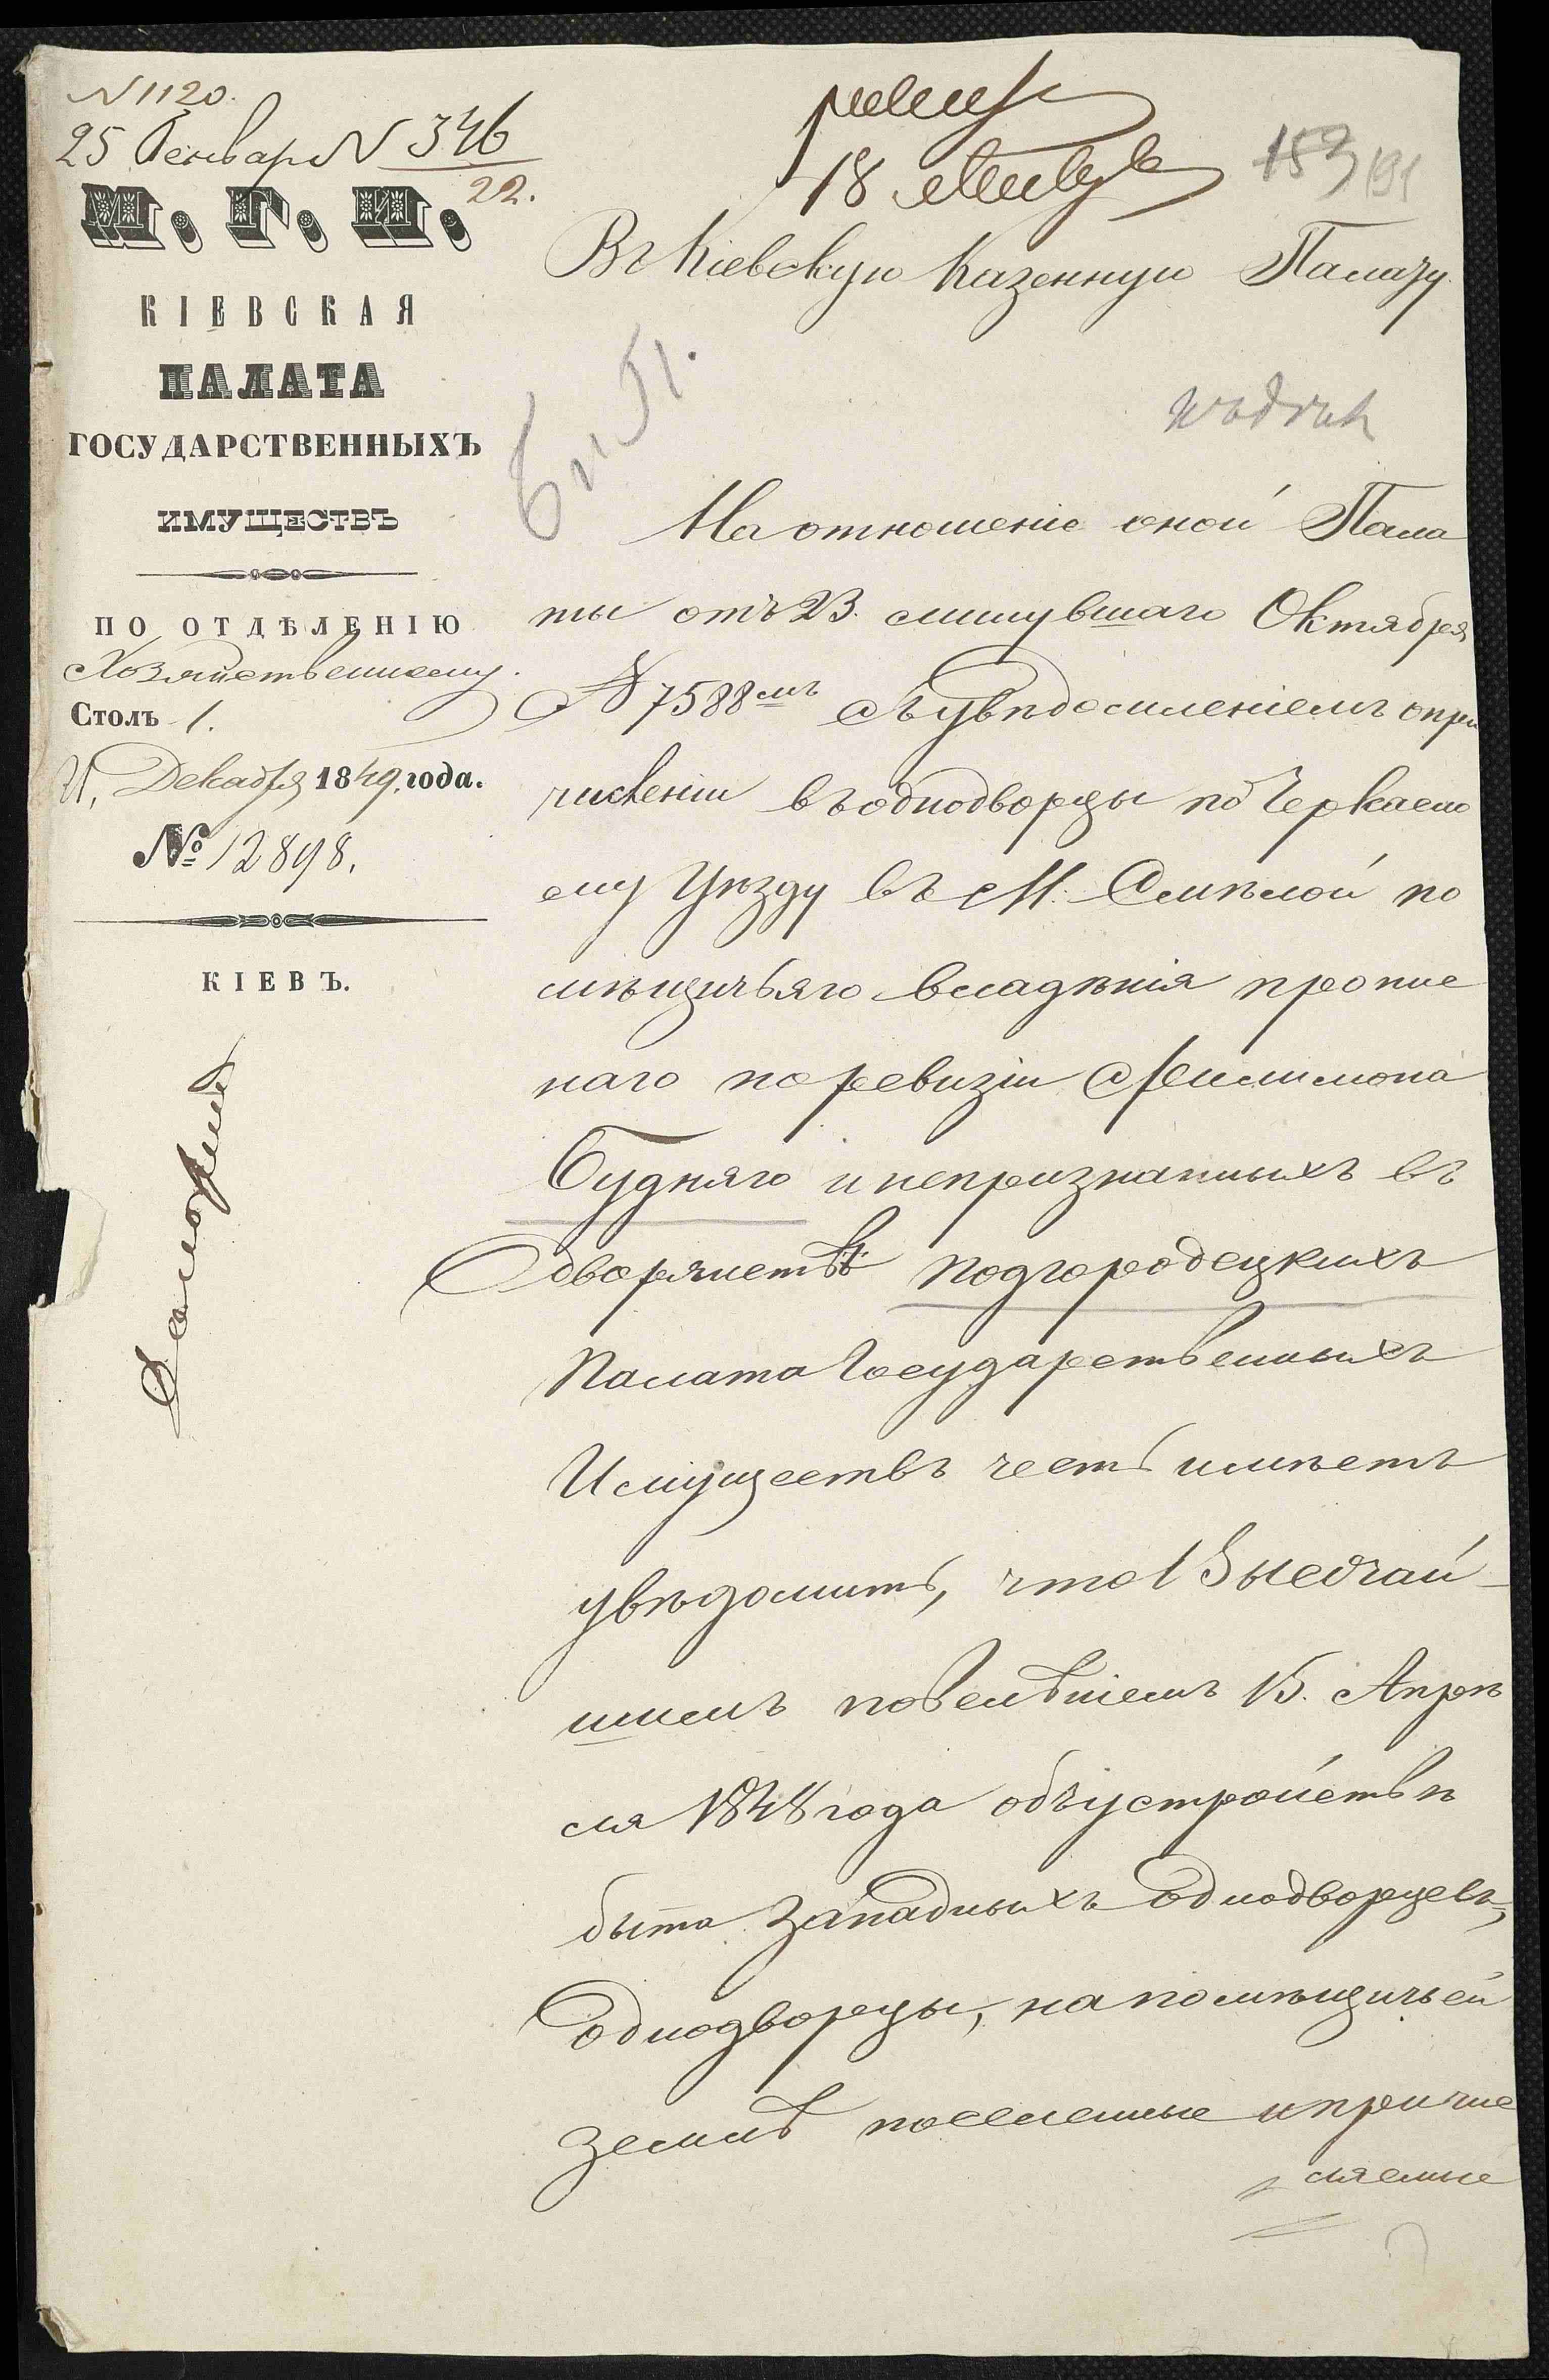 N 1120.
25 Генваря N 346
22.
М. Г. И.
КІЕВСКАЯ
ПАЛАТА
ГОСУДАРСТВЕННЫХЪ
ИМУЩЕСТВЪ
ПО ОТДѢЛЕНІЮ
Хозяйственному.
Столъ 1.
Декабря 1849. года.
№ 12898.
КІЕВЪ.
18
153 191
Въ Кіевскую Казенную Палату.
На отношеніе оной Пала
ты отъ 23. минувшаго Октября
№ 7588мъ съ увѣдомленіемъ о при
численіи въ однодворцы по Черкаско
му Уѣзду въ М. Смѣлой по
мѣщичьяго владѣнія пропис
наго по ревизіи Филимона
Будняго и непризнанныхъ въ
дворянствѣ Подгородецкихъ
Палата Государственныхъ
Имуществъ честь имѣетъ
увѣдомить, что Высочай-
шимъ повелѣніемъ 15. Апрѣ
ля 1848 года объ устройствѣ
быта Западныхъ Однодворцевъ,
Однодворцы, на помѣщичьей
землѣ поселенные и причис
ляемые